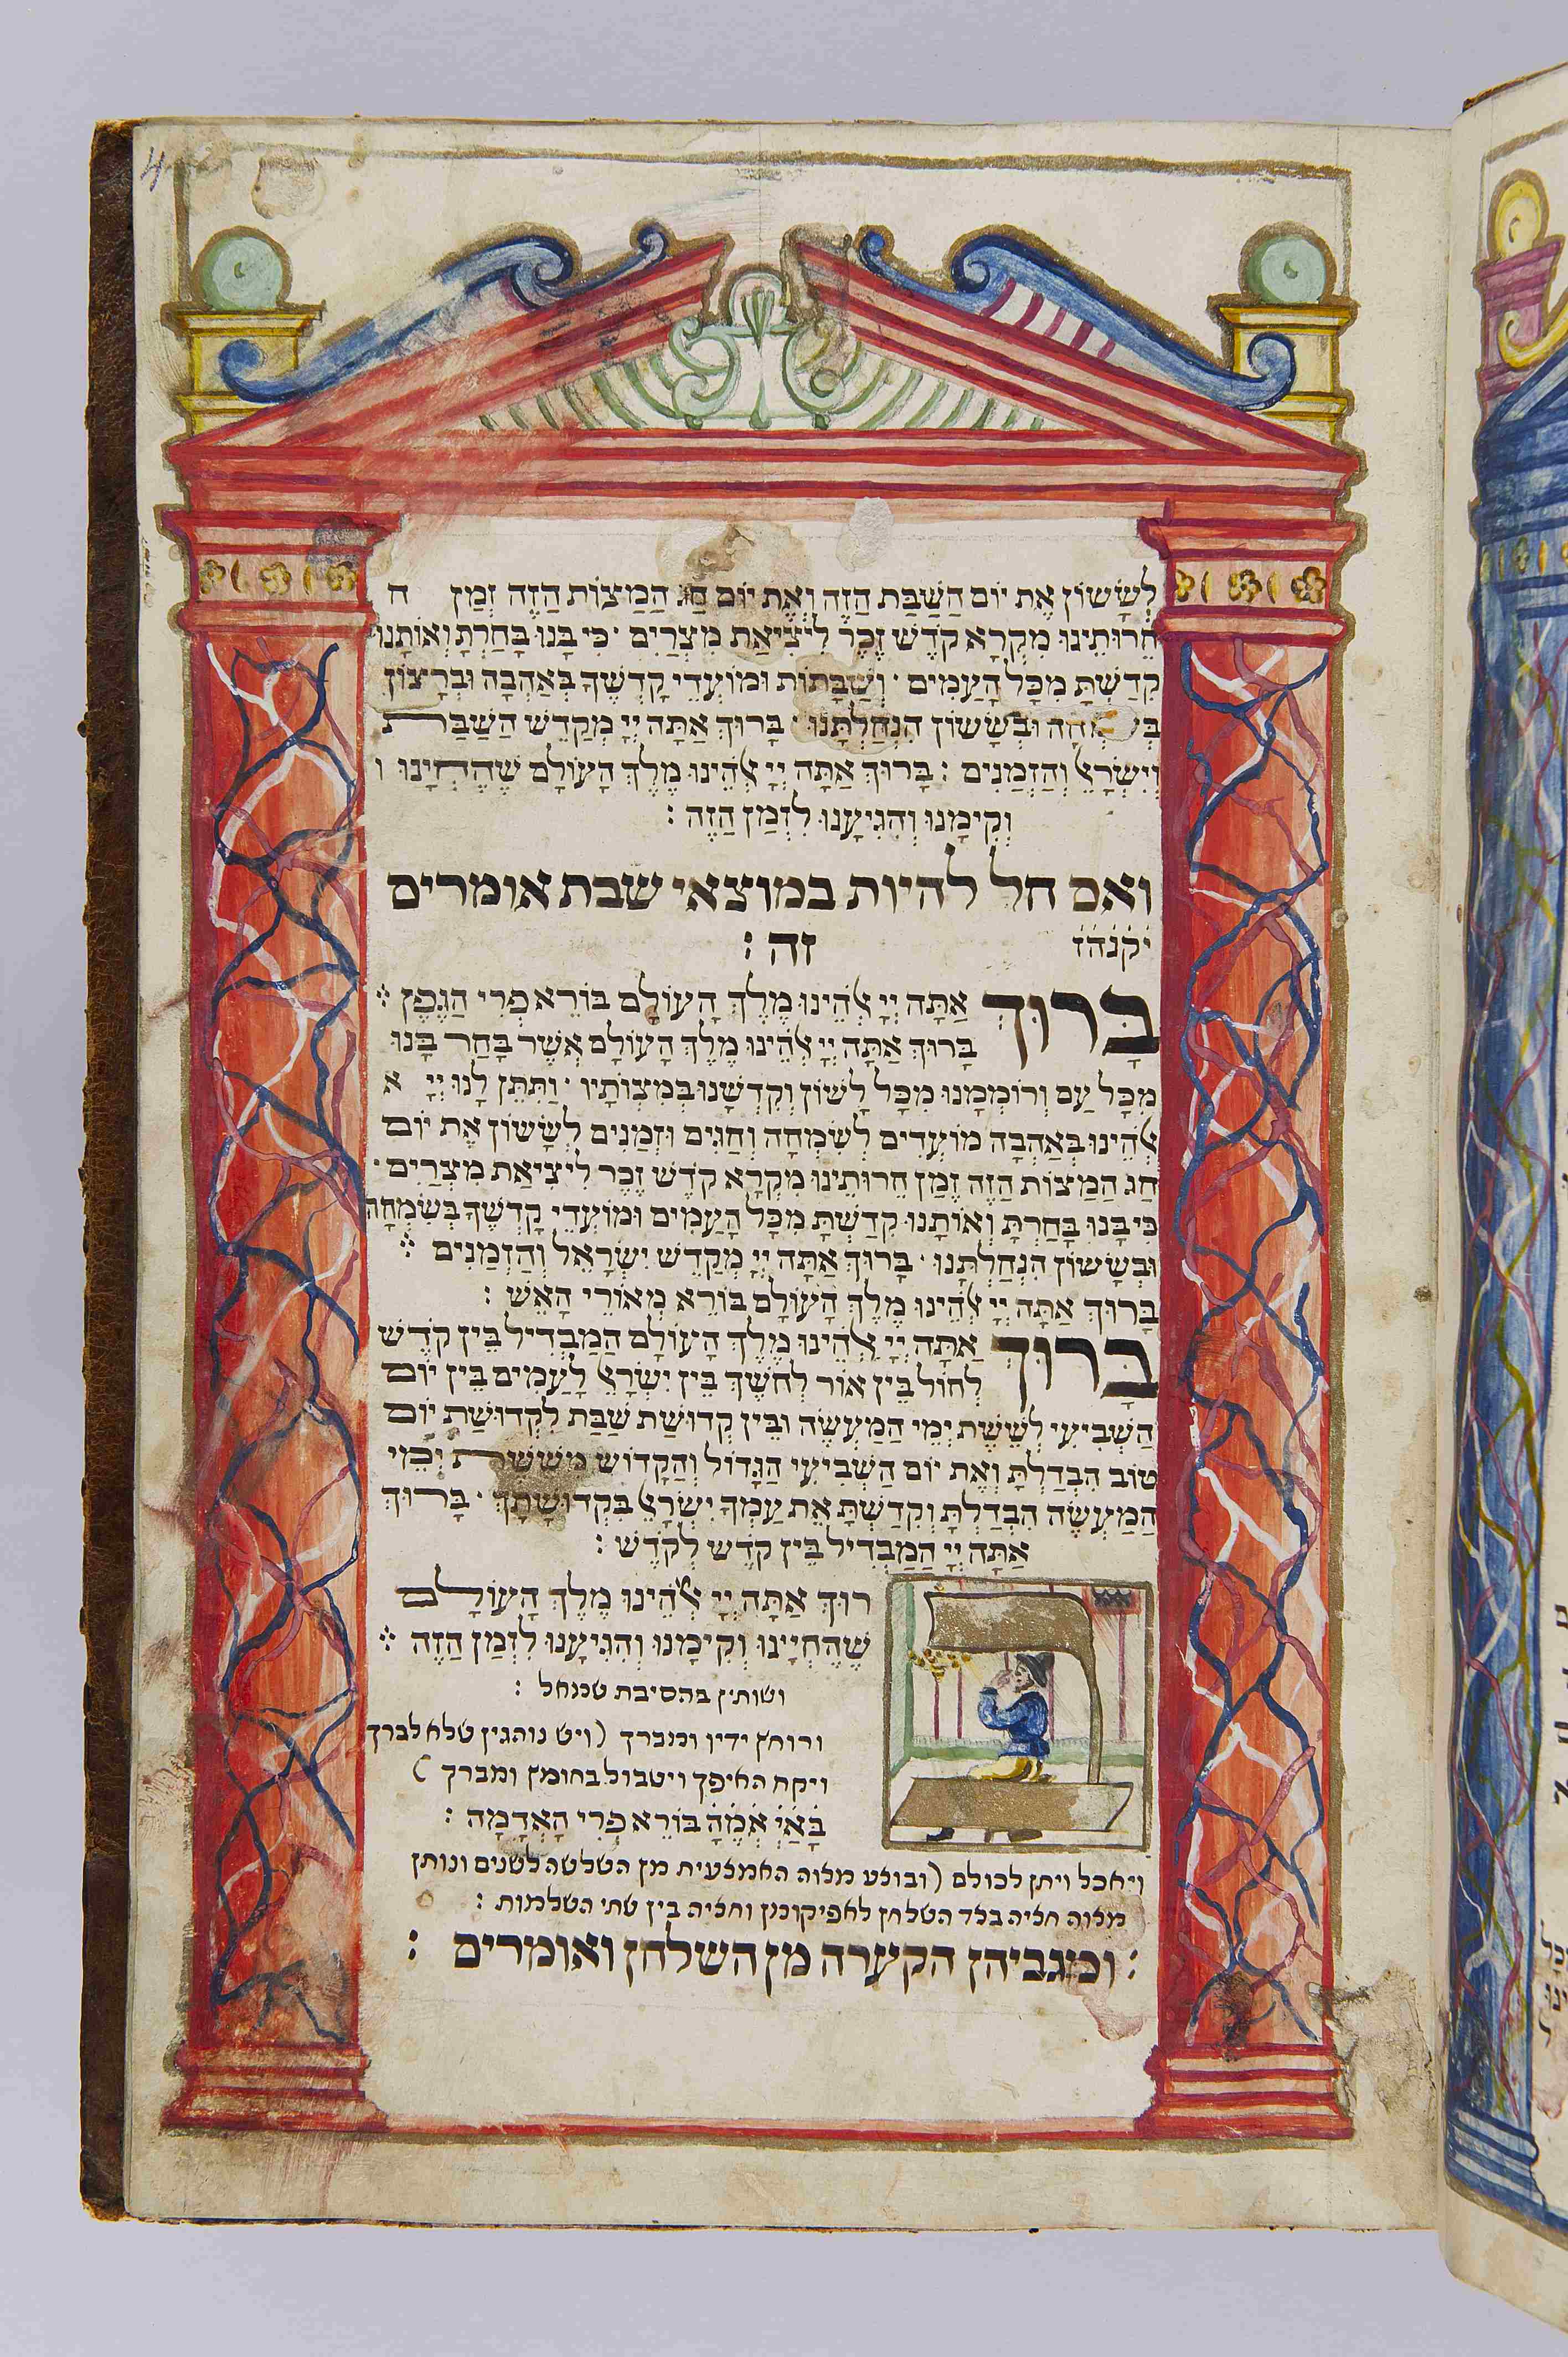 4
לְשָׂשׂוֹן אֶת יוֹם הַשַׁבַּת הַזֶה וְאֶת יוֹם חַג הַמַצוֹת הַזֶה זְמַן ח
חֵרוּתֵינוּ מִקְרָא קֹדֶשׁ זֶכֶר לִיצִיאַת מִצְרַיִם · כִּי בָנוּ בָחַרְתָּ וְאוֹתָנוּ
קִדַשְׁתָּ מִכָּל הָעַמִים · וְשַׁבָּתוֹת וּמוֹעֲדֵי קָדְשֶׁךָ בְּאַהֲבָה וּבְרָצוֹן
וּבְשָׂשׂוֹן הִנְחַלְתָּנוּ · בָּרוּךְ אַתָּה יְיָ מְקַדֵשׁ הַשַׁבַּת
וְיִשְׂרָﭏ וְהַזְמַנִים : בָּרוּךְ אַתָּה יְיָ ﭏהֵינוּ מֶלֶךְ הָעוֹלָם שֶׁהֶחֱיָינוּ ו
וְקִימָנוּ וְהִגִיעָנוּ לִזְמַן הַזֶה :
ואם חל להיות במוצאי שבת אומרים
יקנהז זה :
בָּרוּךְ אַתָּה יְיָ ﭏהֵינוּ מֶלֶךְ הָעוֹלָם בּוֹרֵא פְרִי הַגֶפֶן :
בָּרוּךְ אַתָּה יְיָ ﭏהֵינוּ מֶלֶךְ הָעוֹלָם אֲשֶׁר בָּחַר בָּנוּ
מִכָּל עַם וְרוֹמְמָנוּ מִכָּל לָשׁוֹן וְקִדְשָׁנוּ בְּמִצְוֹתָיו · וַתִּתֵּן לָנוּ יְיָ א
ﭏהֵינוּ בְּאַהֲבָה מוֹעֲדִים לְשִׂמְחָה וְחַגִים וּזְמַנִים לְשָׂשׂוֹן אֶת יוֹם
חַג הַמַצוֹת הַזֶה זְמַן חֵרוּתֵינוּ מִקְרָא קֹדֶשׁ זֶכֶר לִיצִיאַת מִצְרַיִם ·
כִּי בָנוּ בָּחַרְתָּ וְאוֹתָנוּ קִדַשְׁתָּ מִכָּל הָעַמִים וּמוֹעֲדֵי קָדְשֶׁךָ בְּשִׂמְחָה
וּבְשָׂשׂוֹן הִנְחַלְתָּנוּ · בָּרוּךְ אַתָּה יְיָ מְקַדֵשׁ יִשְׂרָאֵל וְהַזְמַנִים :
בָּרוּךְ אַתָּה יְיָ ﭏהֵינוּ מֶלֶךְ הָעוֹלָם בּוֹרֵא מְאוֹרֵי הָאֵשׁ :
בָּרוּךְ אַתָּה יְיָ ﭏהֵינוּ מֶלֶךְ הָעוֹלָם הַמַבְדִיל בֵּין קֹדֶשׁ
לְחוֹל בֵּין אוֹר לְחֹשֶׁךְ בֵּין יִשְׂרָﭏ לָעַמִים בֵּין יוֹם
הַשְׁבִיעִי לְשֵׁשֶׁת יְמֵי הַמַעֲשֶׂה וּבֵין קְדוּשַׁת שַׁבַּת לִקְדוּשַׁת יוֹם
טוֹב הִבְדַלְתָּ וְאֶת יוֹם הַשְׁבִיעִי הַגָדוֹל וְהַקָדוֹשׁ מִשֵׁשֶׁת יְמֵי
הַמַעֲשֶׂה הִבְדַלְתָּ וְקִדַשְׁתָּ אֶת עַמְךָ יִשְׂרָﭏ בִּקְדוּשָׁתָךְ · בָּרוּךְ
אַתָּה יְיָ הַמַבְדִיל בֵּין קֹדֶשׁ לְקֹדֶשׁ :
רוּךְ אַתָּה יְיָ ﭏהֵינוּ מֶלֶךְ הָעוֹלָם
שֶׁהֶחְיָינוּ וְקִימָנוּ וְהִגִיעָנוּ לִזְמַן הַזֶה :
ושותין בהסיבת שמאל :
ורוחץ ידיו ומברך (ויש נוהגין שלא לברך
ויקח האיפך ויטבול בחומץ ומברך )
בָּאַיְ אֱמֶהָ בּוֹרֵא פְרִי הָאֲדָמָה :
ויאכל ויתן לכולם (ובוצע מצוה האמצעית מן השלשה לשנים ונותן
מצוה חציה בצד השלחן לאפיקומן וחציה בין שתי השלמות :
: ומגביהן הקערה מן השלחן ואומרים :